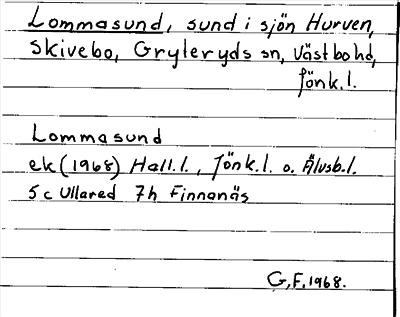 Lommasund, sund i sjön Hurven,
Skivebo, Gryteryds sn, Västbo hd,
Jönk.l.
Lommasund
ek (1968) Hall.l., Jönk.l. o. Älvsb.l.
5c Ullared 7h Finnanäs
G.F. 1968.